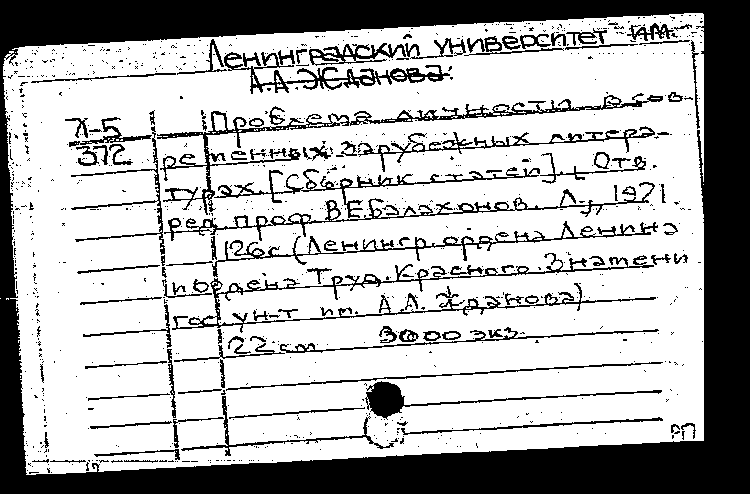 Ленинградский университет им.
А.А. Жданова.
Л-5 Проблема личности в сов-
372 ременных зарубежных литера-
турах. [Сборник статей]. Отв.
ред. проф В.Е.Балахонов. Л., 1971.
126с. (Ленингр. ордена Ленина
и ордена Труд. Красного. Знамени
гос. ун-т им. А.А. Жданова)
22 cm 3000 экз.
РП